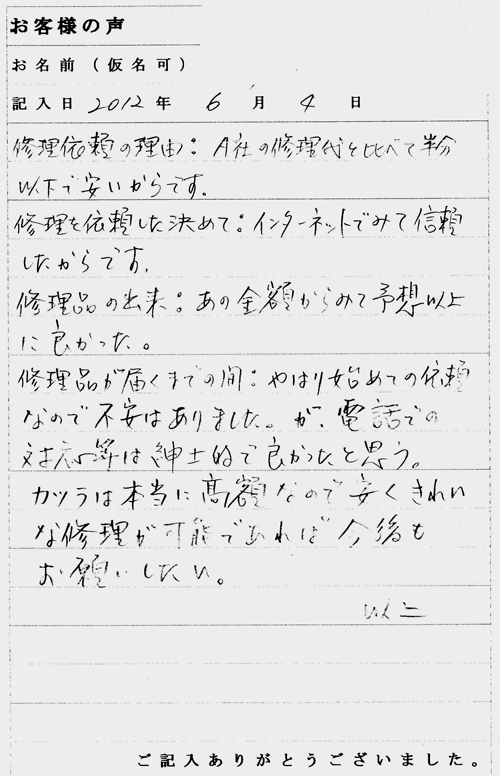 お客様の声
お名前（仮名可）
記入日 2012 年 6 月 4 日
修理依頼の理由：A社の修理代と比べて半分
以下で安いからです。
修理を依頼した決めて：インターネットでみて信頼
したからです。
修理品の出来：あの金額からみて予想以上
に良かった。
修理品が届くまでの間：やはり始めての依頼
なので不安はありました。が、電話での
対応等は紳士的で良かったと思う。
カツラは本当に高額なので安くきれい
な修理が可能であれば今後も
お願いしたい。
以上
ご記入ありがとうございました。